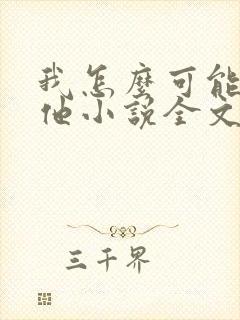 我怎麼可能
他小說全文
三千界